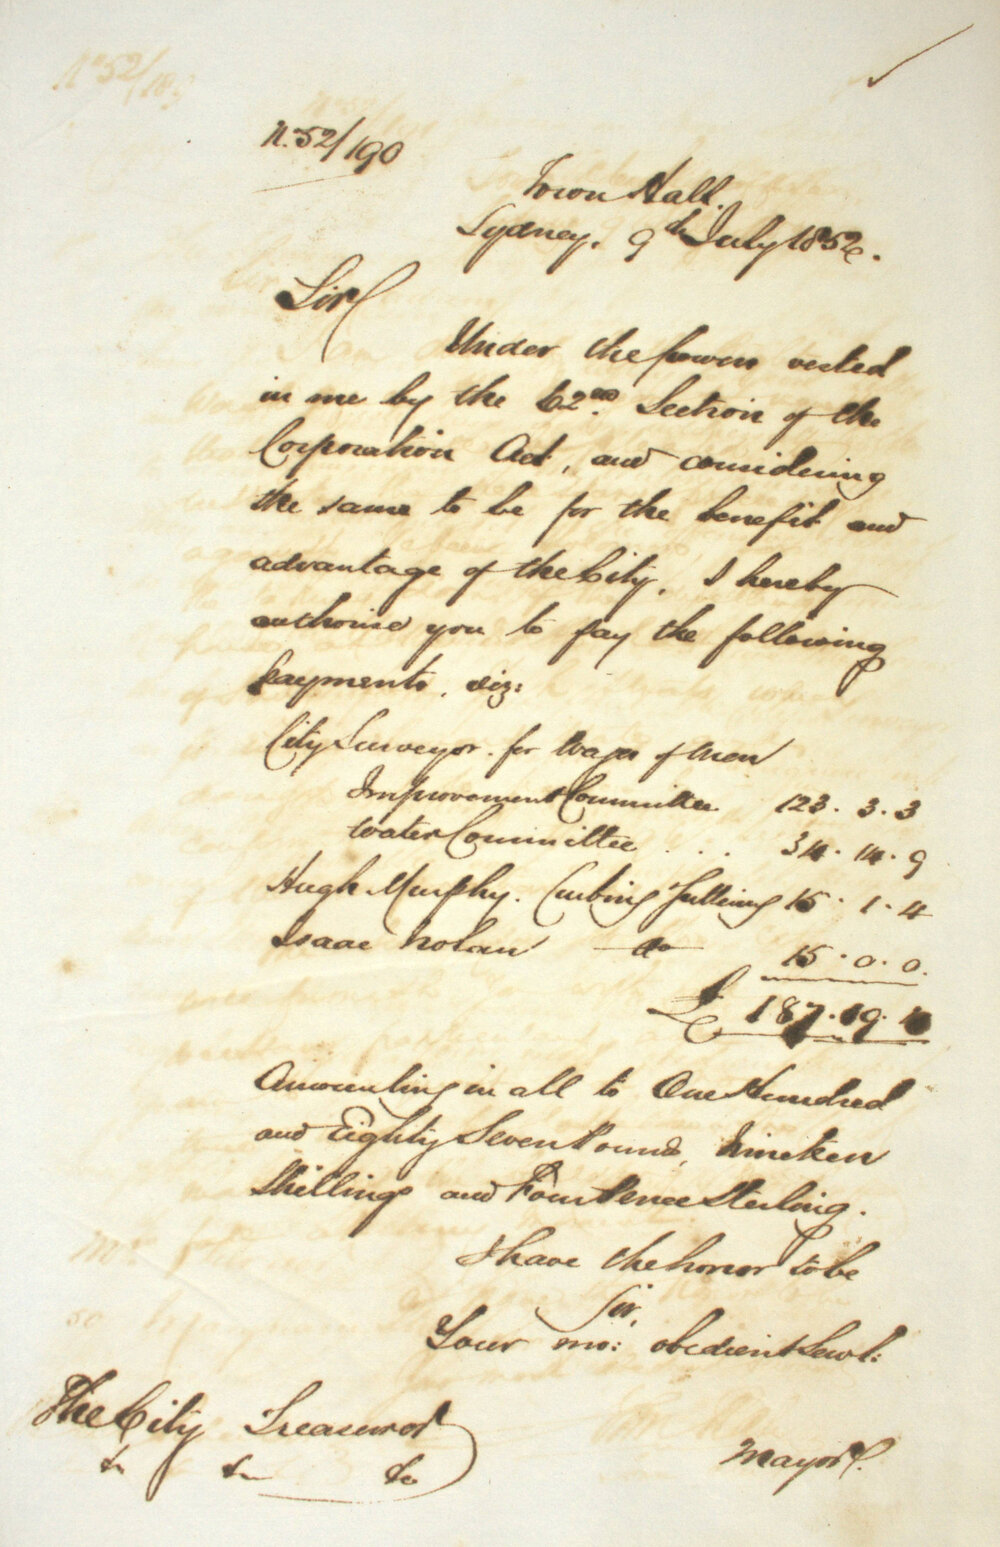 No. 52/190
Town Hall.
Sydney. 9th July 1852.
Sir
Under the powers vested
in me by the 62nd. Section of the
Corporation Act, and considering
the same to be for the benefit and
advantage of the City, I hereby
authorise you to pay the following
payments, viz:
City Surveyor. for Wages of Men
Improvement Committee 123. 3. 3
Water Committee . . . 34. 14. 9
Hugh Murphy. Curbing Guttering 15. 1. 4
Isaac Nolan do 15. 0. 0.
£ 187. 19. 4
Amounting in all to One Hundred
and Eighty Seven Pounds, Nineteen
Shillings and Four Pence Sterling.
I have the honor to be
Sir,
Your mo: obedient Servt:
The City Treasurer
&c &c &c
Mayor.